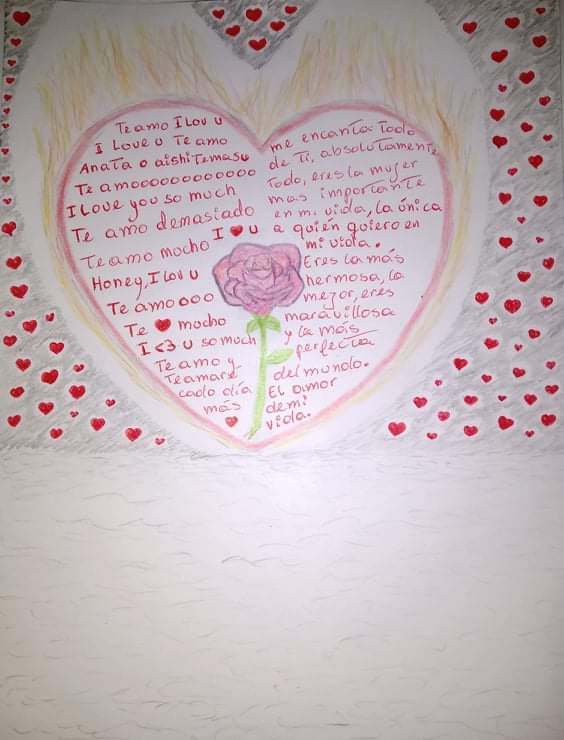 Te amo I Lov u
I Love u Te amo
Anata o aishiTemasu
Te amoooooooooooo
I Love you so much
Te amo demasiado
Te amo mucho I ♥ u
Honey, I Lov u
Te amoooo
Te ♥ mucho
I <3 u so much
Te amo y
Te amaré
cada día
más
♥
me encanta Todo
de Ti, absolutamente
Todo, eres la mujer
mas importante
en mi vida, la única
a quién quiero en
mi vida.
Eres la más
hermosa, la
mejor, eres
maravillosa
y la más
perfecta
del mundo.
El amor
de mi
vida.